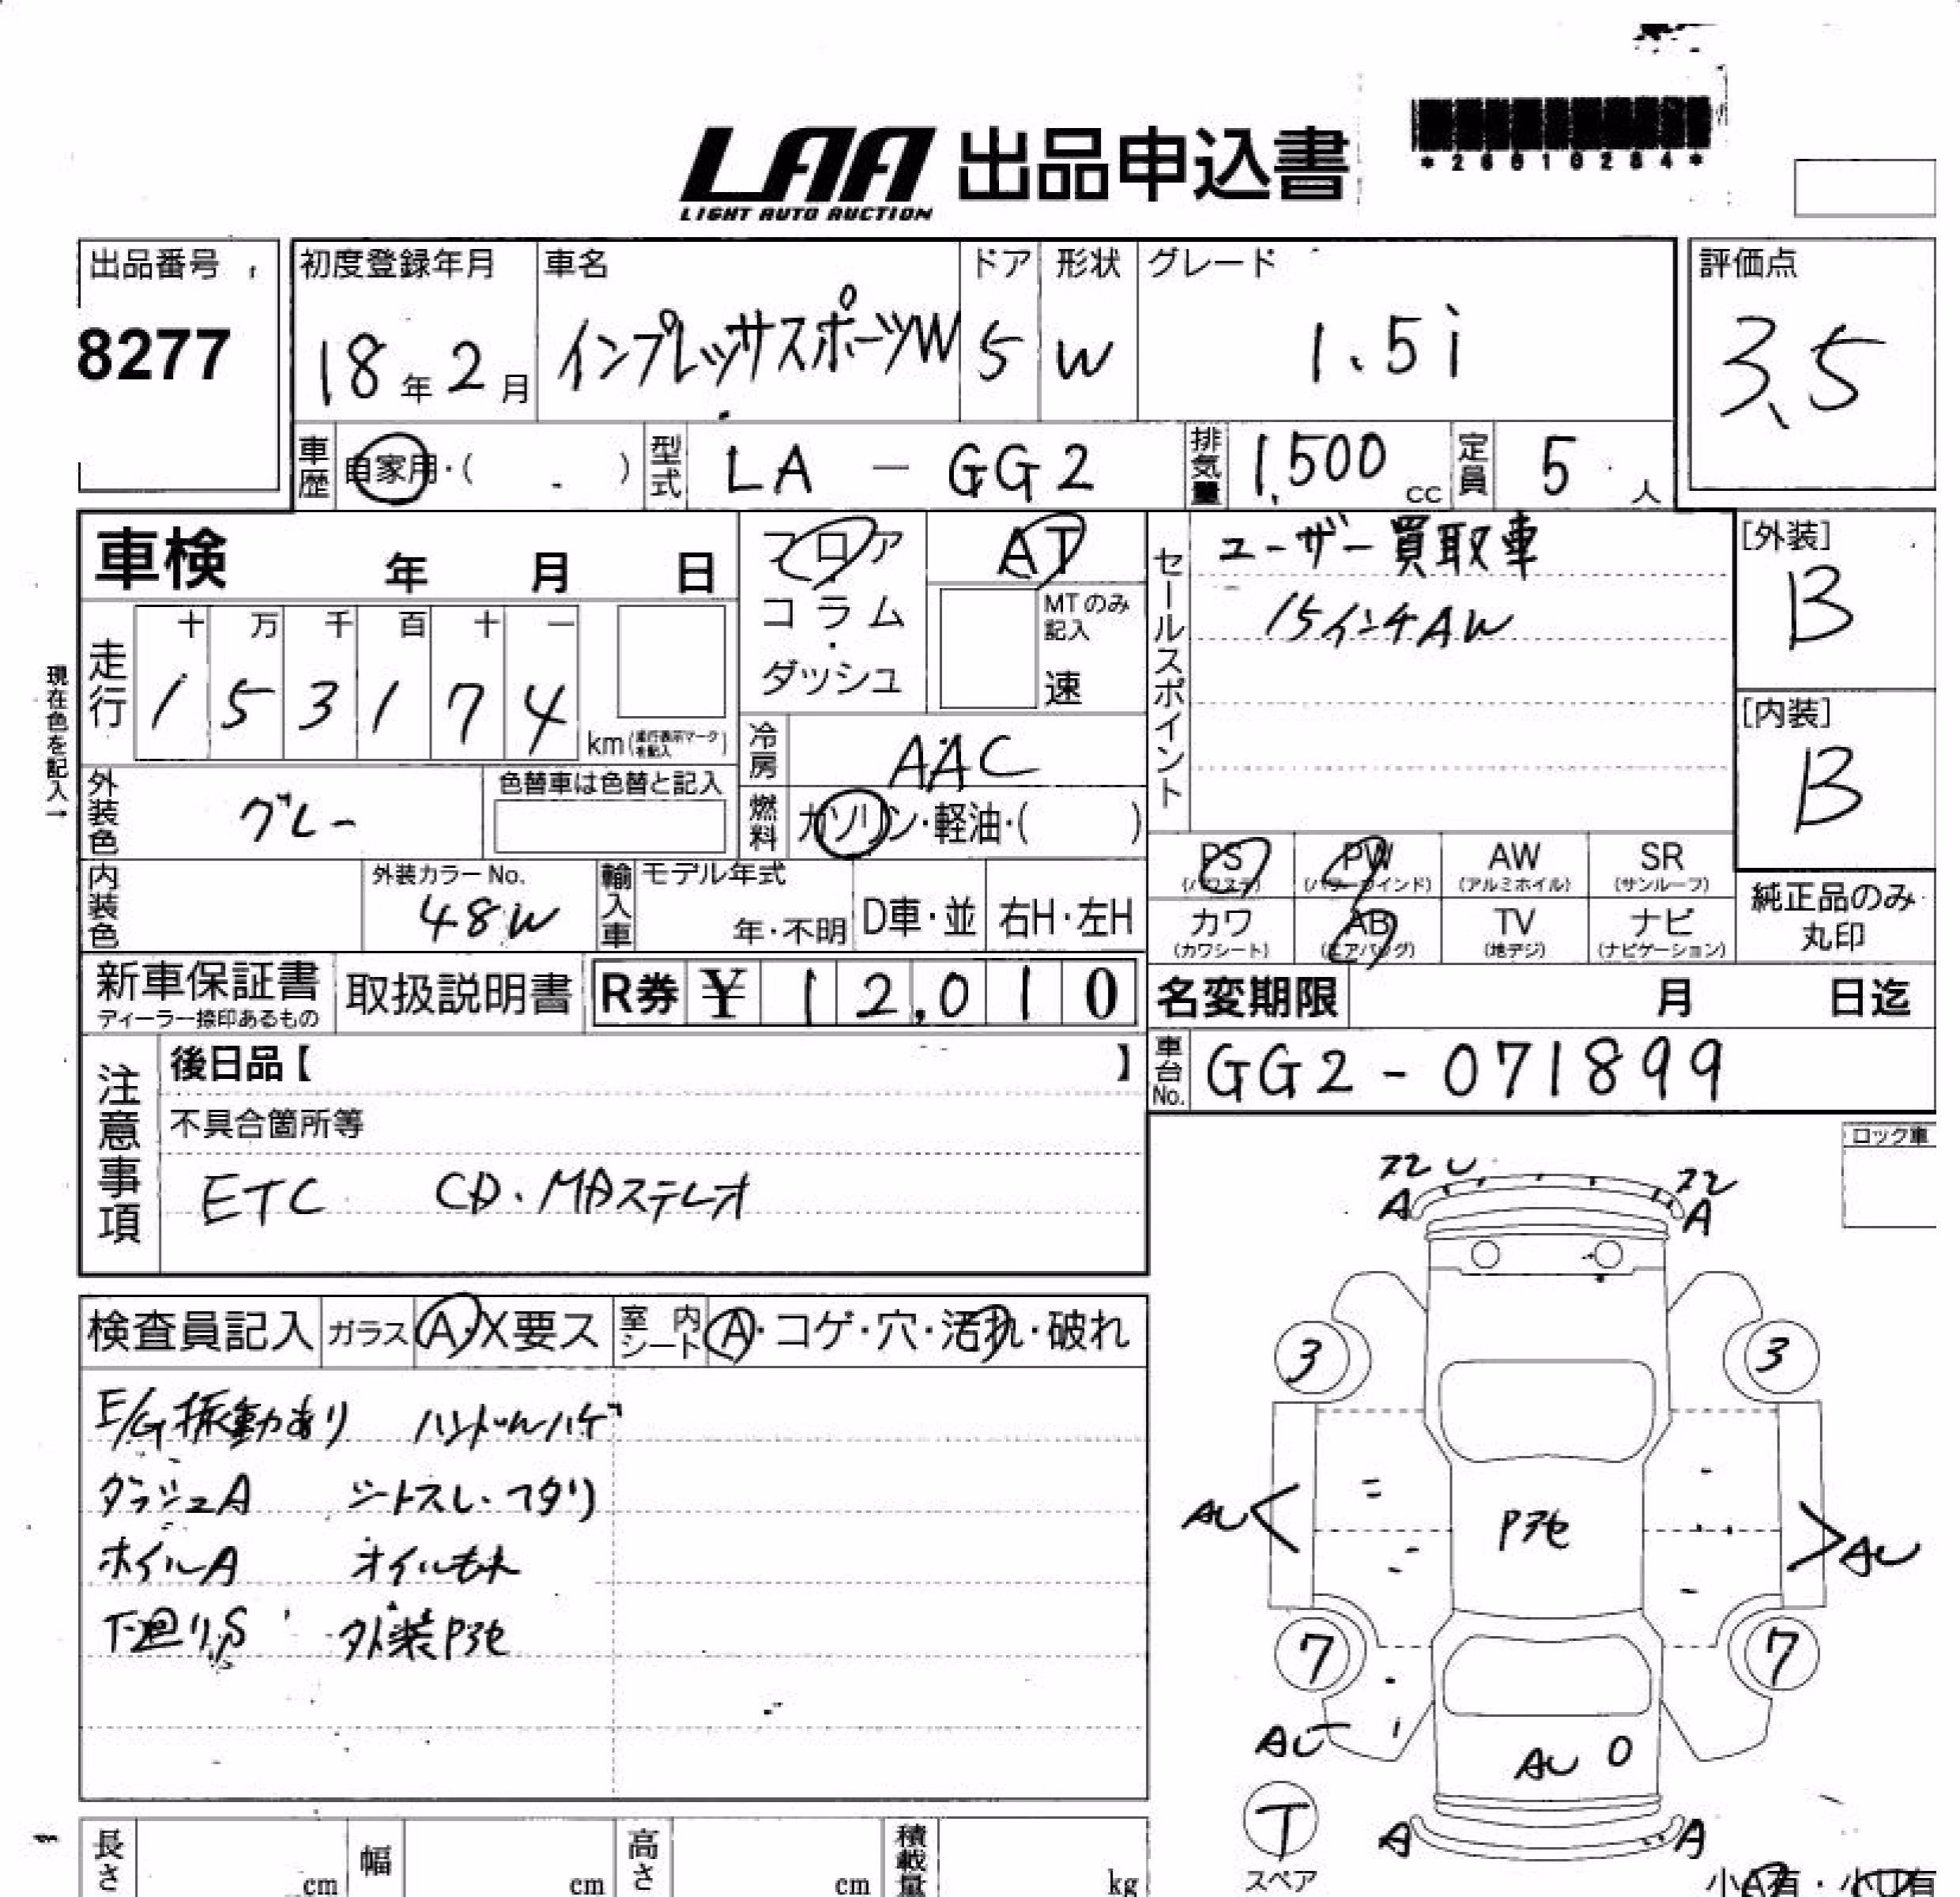 LAA 出品申込書
LIGHT AUTO AUCTION
*26010284*
出品番号
8277
初度登録年月
18年2月
車名
インプレッサスポーツW
ドア
5
形状
W
グレード
1.5i
評価点
3.5
車歴
自家用・( )
型式
LA - GG2
排気量
1,500 cc
定員
5 人
車検 年 月 日
フロア
コラム
・
ダッシュ
AT
MTのみ
記入
速
セールスポイント
ユーザー買取車
15インチAW
[外装]
B
[内装]
B
現在色を記入→
走行
十 万 千 百 十 一
1 5 3 1 7 4
km(走行表示マークを記入)
冷房
AAC
燃料
ガソリン・軽油・( )
外装色
グレー
色替車は色替と記入
内装色
外装カラーNo.
48W
輸入車
モデル年式
年・不明
D車・並
右H・左H
PS
(パワステ)
PW
(パワーウインド)
AW
(アルミホイル)
SR
(サンルーフ)
カワ
(カワシート)
AB
(エアバッグ)
TV
(地デジ)
ナビ
(ナビゲーション)
純正品のみ
丸印
新車保証書
ディーラー捺印あるもの
取扱説明書
R券 ¥12,010
名変期限 月 日迄
車台No.
GG2-071899
注意事項
後日品【 】
不具合箇所等
ETC CD・MDステレオ
ロック車
検査員記入
ガラス
A・X要ス
室内シート
A・コゲ・穴・汚れ・破れ
E/G振動あり ハンドルハゲ
ダッシュA シートスレ・ヘタリ
ホイルA オイルモレ
下廻りS 外装Pボセ
U
A
A
3
3
AU
AU
7
7
AU
AU
T
スペア
A
A
長さ cm
幅 cm
高さ cm
積載量 kg
小A有・小U有